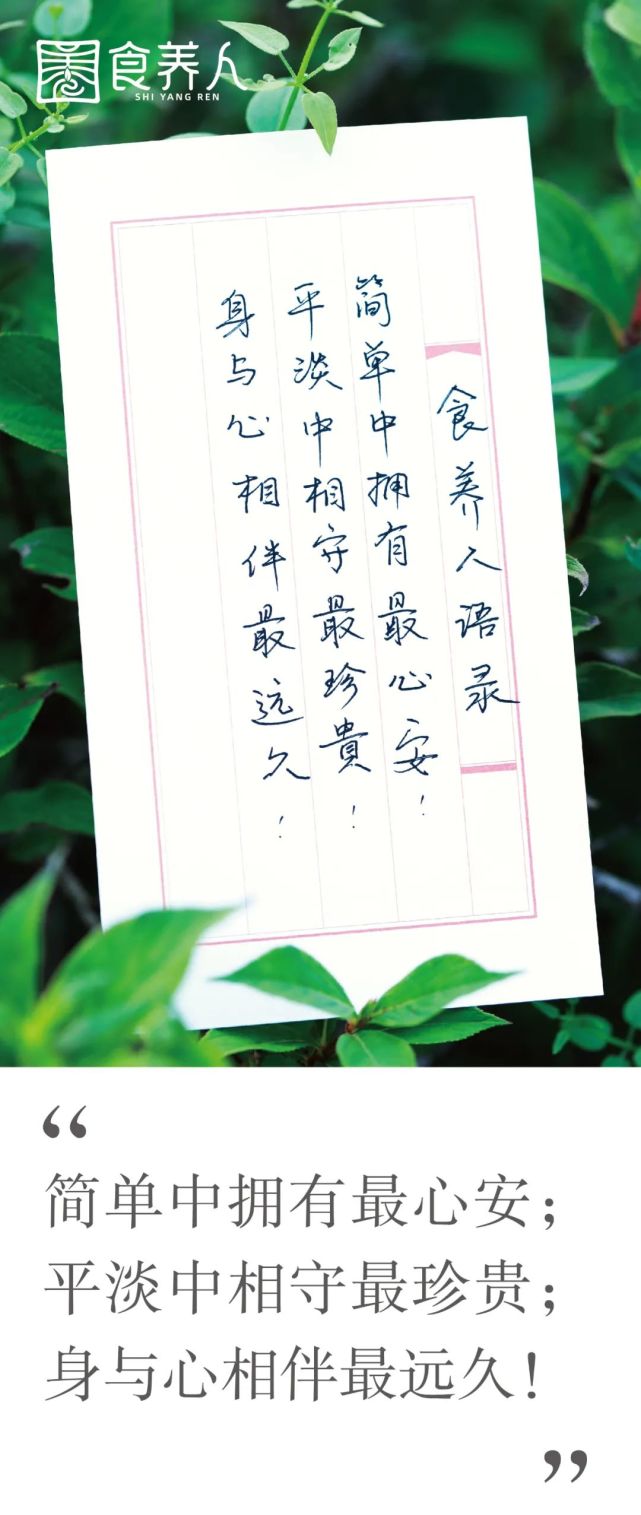 食养人
SHI YANG REN
食养人语录
简单中拥有最心安！
平淡中相守最珍貴！
身与心相伴最远久！
“
简单中拥有最心安；
平淡中相守最珍贵；
身与心相伴最远久！
”